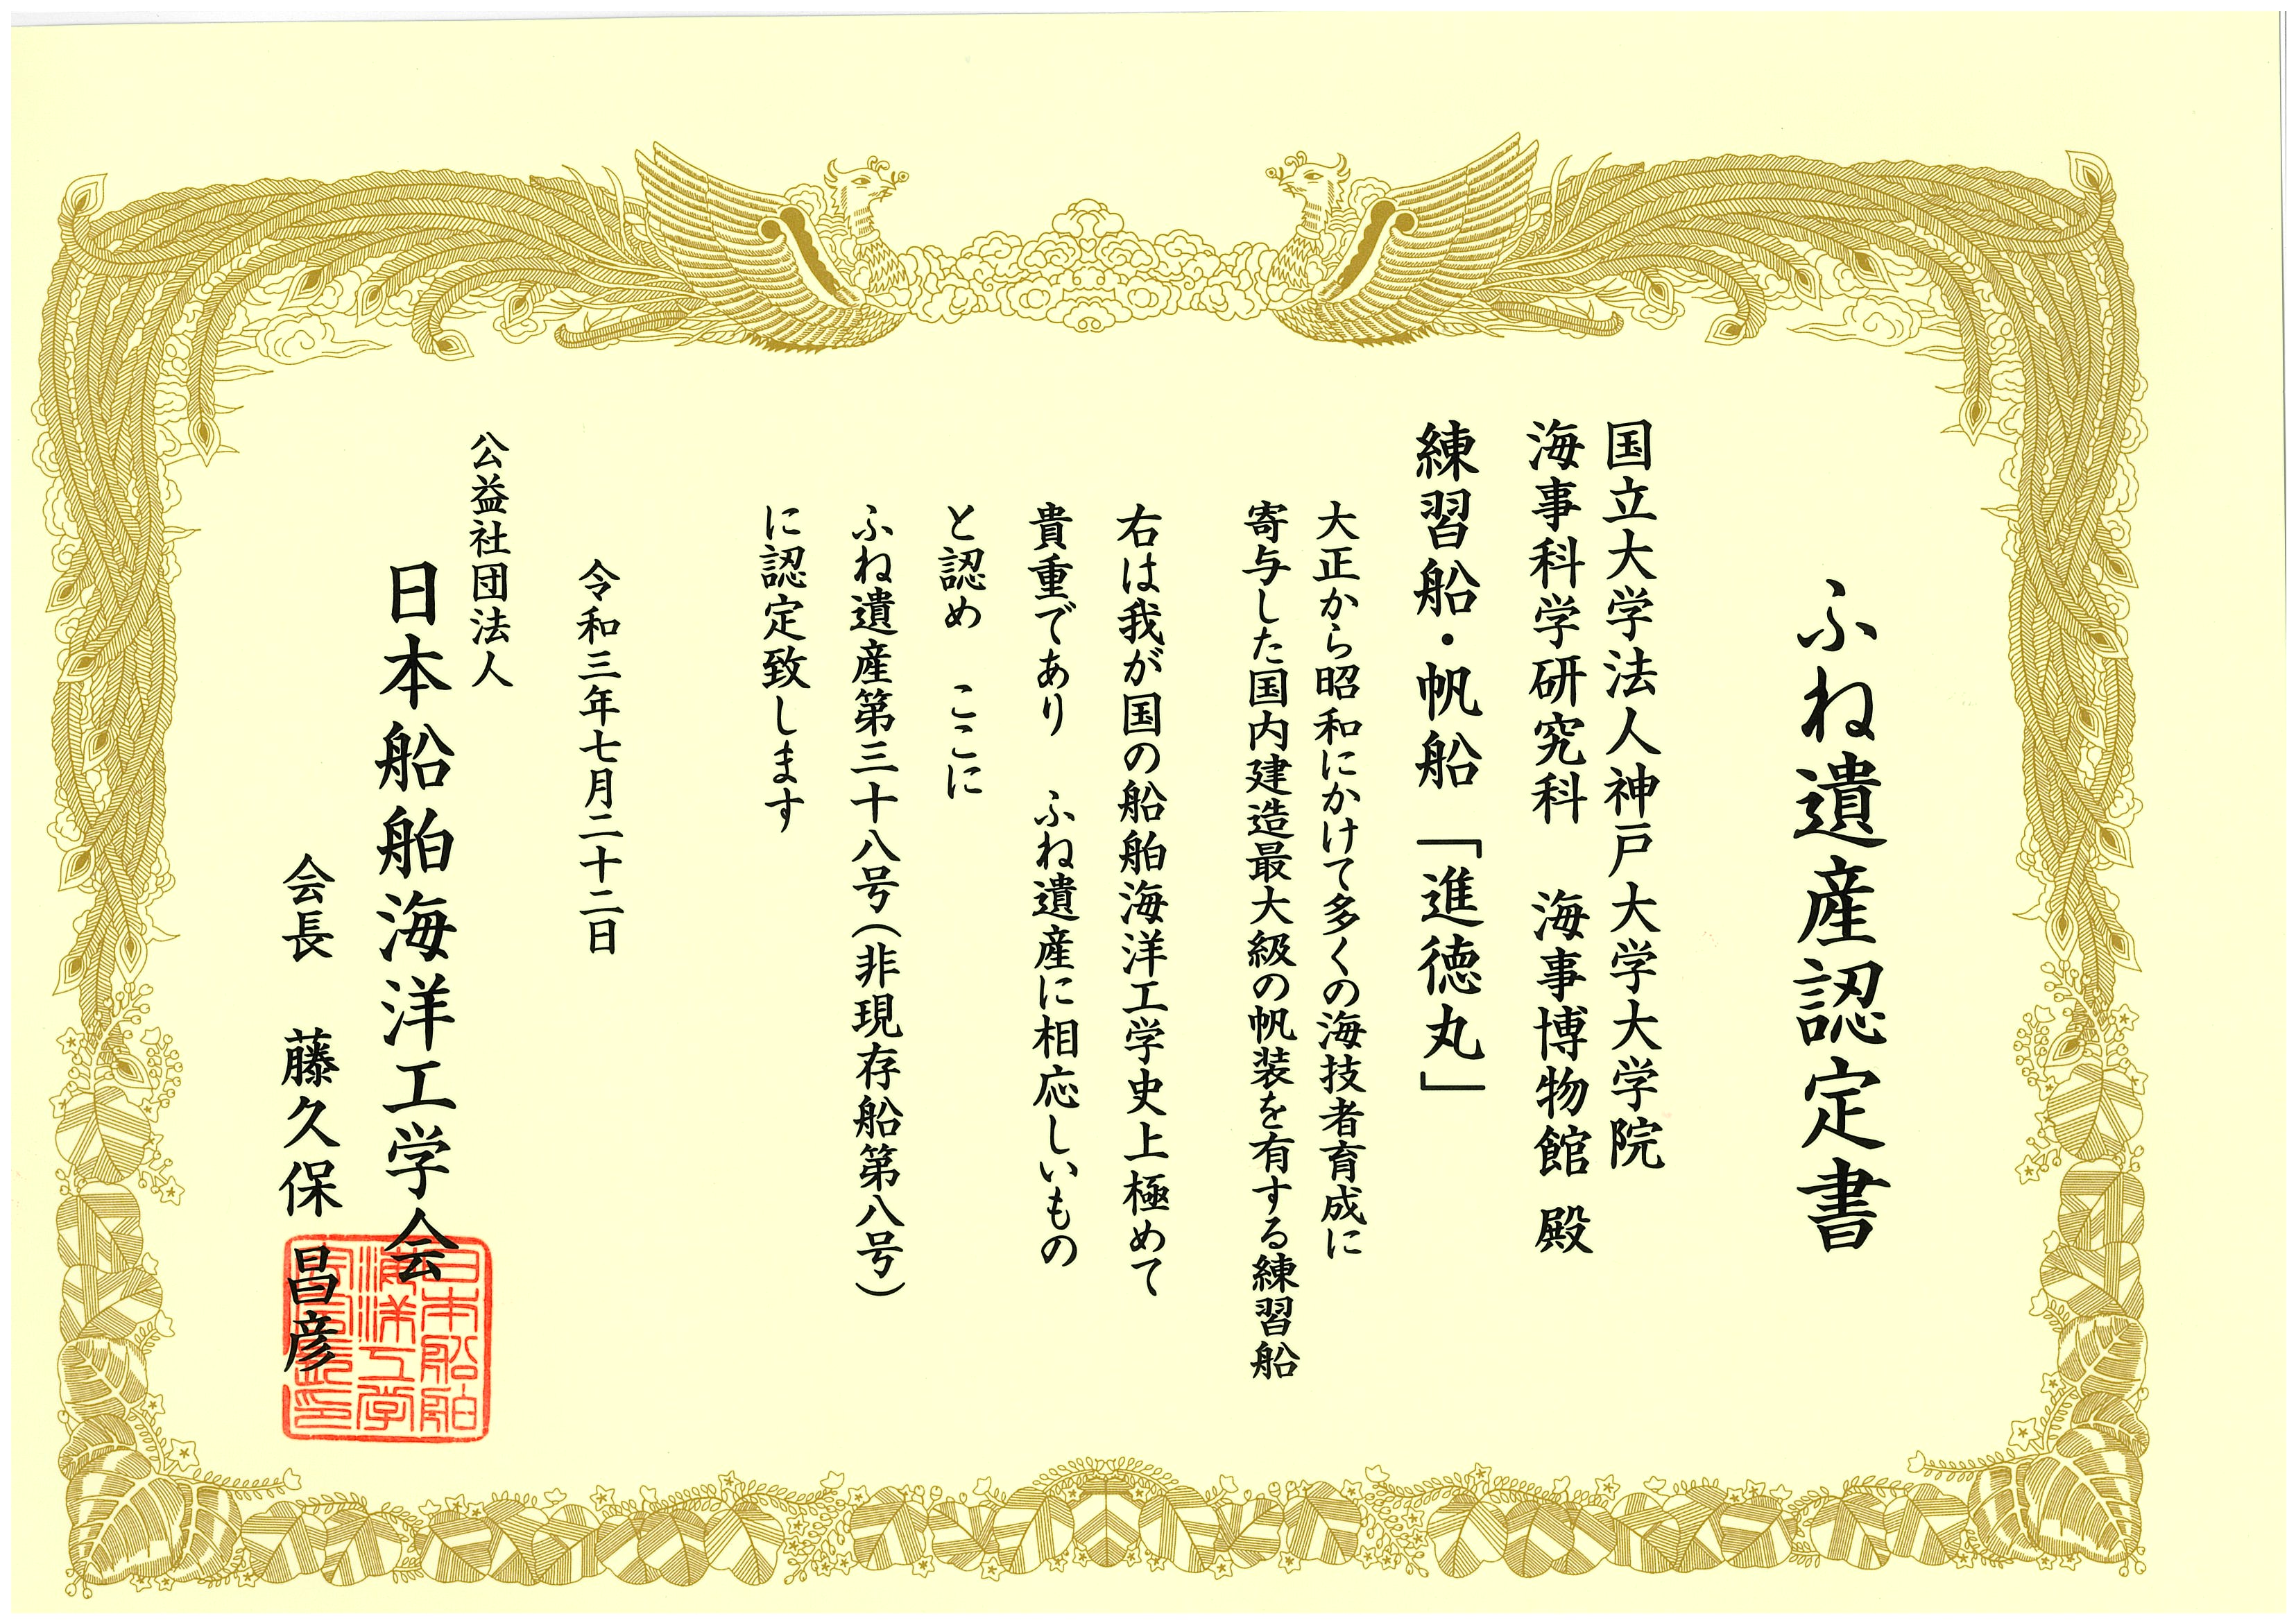 ふね遺産認定書
国立大学法人神戸大学大学院
海事科学研究科　海事博物館 殿
練習船・帆船「進徳丸」
大正から昭和にかけて多くの海技者育成に
寄与した国内建造最大級の帆装を有する練習船
右は我が国の船舶海洋工学史上極めて
貴重であり　ふね遺産に相応しいもの
と認め　ここに
ふね遺産第三十八号(非現存船第八号)
に認定致します
令和三年七月二十二日
公益社団法人
日本船舶海洋工学会
会長　藤久保　昌彦
日本船舶
海洋工学